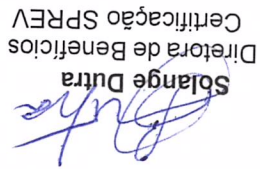 Solange Dutra
Diretora de Benefícios
Certificação SPREV